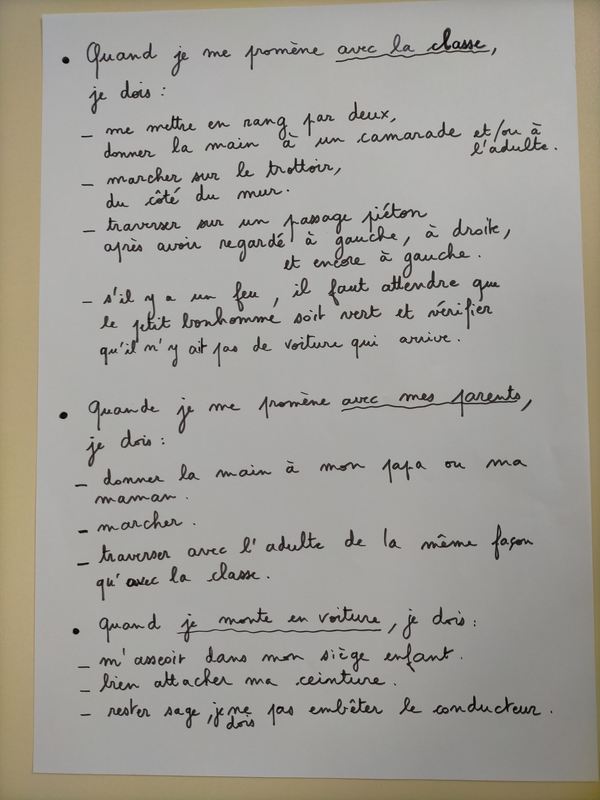 • Quand je me promène avec la classe,
je dois :
– me mettre en rang par deux,
donner la main à un camarade et/ou à
l'adulte.
– marcher sur le trottoir,
du côté du mur.
– traverser sur un passage piéton
après avoir regardé à gauche, à droite,
et encore à gauche.
– s'il y a un feu, il faut attendre que
le petit bonhomme soit vert et vérifier
qu'il n'y ait pas de voiture qui arrive.
• Quande je me promène avec mes parents,
je dois :
– donner la main à mon papa ou ma
maman.
– marcher.
– traverser avec l'adulte de la même façon
qu'avec la classe.
• Quand je monte en voiture, je dois :
– m'asseoir dans mon siège enfant.
– bien attacher ma ceinture.
– rester sage, je ne pas embêter le conducteur.
dois